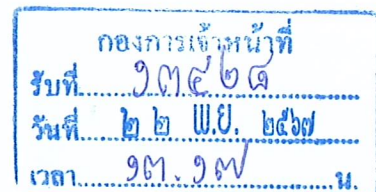 กองการเจ้าหน้าที่
รับที่ ๑๓๕๒๘
วันที่ ๒ ๒ พ.ย. ๒๕๖๗
เวลา ๑๓.๑๗ น.